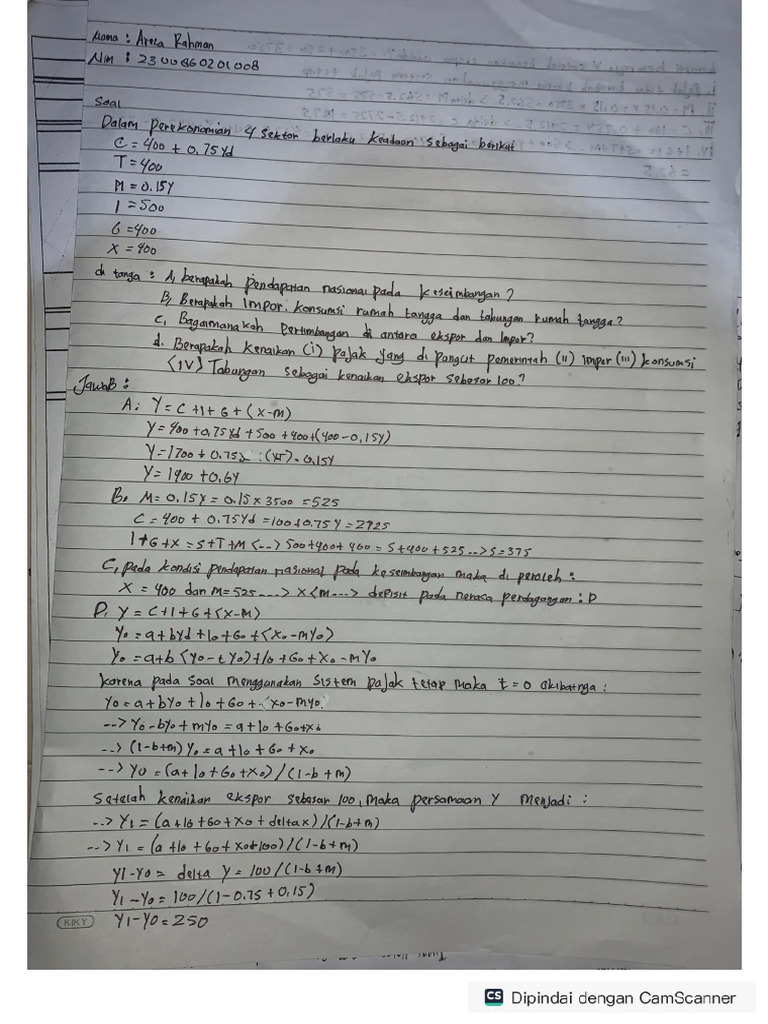 Nama : Arela Rahman
Nim : 2300860201008
Soal
Dalam perekonomian 4 sektor berlaku keadaan sebagai berikut
C = 400 + 0,75Yd
T = 400
M = 0.15Y
I = 500
G = 400
X = 400
di tanga : A, berapakah pendapatan nasional pada keseimbangan ?
B, Berapakah Impor, konsumsi rumah tangga dan tabungan rumah tangga ?
C, Bagaimanakah Pertimbangan di antara ekspor dan Impor ?
d. Berapakah kenaikan (i) pajak yang di pangut pemerintah (II) impor (III) konsumsi
(IV) Tabungan sebagai kenaikan ekspor sebesar 100 ?
Jawab :
A : Y = C + I + G + (X-M)
Y = 400 + 0.75Yd + 500 + 400 + (400 - 0,15Y)
Y = 1700 + 0.75 (Y-T) - 0,15Y
Y = 1400 + 0.6Y
B, M = 0.15Y = 0.15 x 3500 = 525
C = 400 + 0.75Yd = 100 + 0.75Y = 2725
I + G + X = S + T + M <--> 500 + 400 + 400 = S + 400 + 525 --> S = 375
C, pada kondisi pendapatan nasional pada keseimbangan maka di peroleh :
X = 400 dan M = 525 ---> X < M ---> defisit pada neraca perdagangan : D
D, Y = C + I + G + (X-M)
Yo = a + bYd + Io + Go + (Xo - mYo)
Yo = a + b (Yo - tYo) + Io + Go + Xo - mYo
karena pada soal menggunakan sistem pajak tetap maka t = 0 akibatnya :
Yo = a + bYo + Io + Go + (Xo - mYo
--> Yo - bYo + mYo = a + Io + Go + Xo
--> (1-b+m) Yo = a + Io + Go + Xo
--> Yo = (a + Io + Go + Xo) / (1-b + m)
Setelah kenaikan ekspor sebesar 100, maka persamaan Y menjadi :
--> Y1 = (a + Io + Go + Xo + delta x) / (1-b + m)
--> Y1 = (a + Io + Go + Xo + 100) / (1-b + m)
Y1 - Yo = delta Y = 100 / (1-b + m)
Y1 - Yo = 100 / (1 - 0.75 + 0.15)
Y1 - Yo = 250
KIKY
CS Dipindai dengan CamScanner